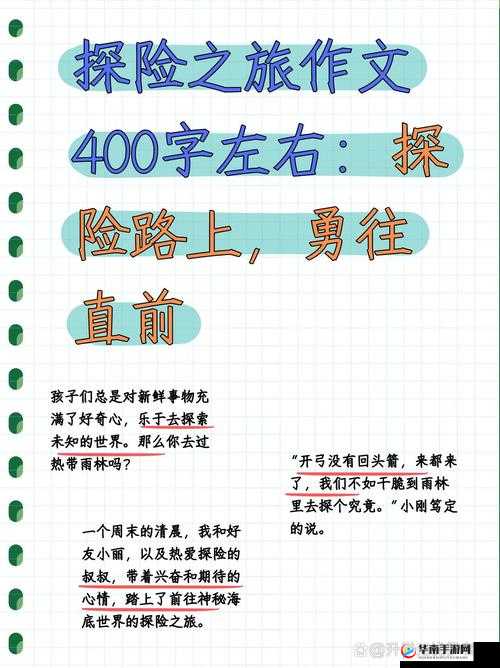 探险之旅作文
400字左右：探
险路上，勇往
直前
孩子们总是对新鲜事物充
满了好奇心，乐于去探索
未知的世界。那么你去过
热带雨林吗？
“开弓没有回头箭，来都来
了，我们不如干脆到雨林
里去探个究竟。”小刚笃定
的说。
一个周末的清晨，我和好
友小丽，以及热爱探险的
叔叔，带着兴奋和期待的
心情，踏上了前往神秘海
底世界的探险之旅。
华南手游网